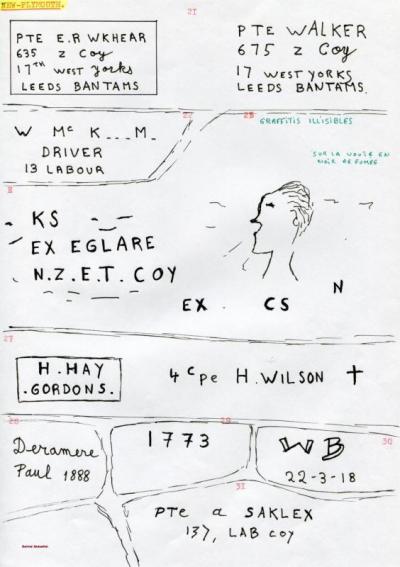 NEW-PLYMOUTH.
21
PTE E.R WKHEAR
635 Z Coy
17TH WEST Yorks
LEEDS BANTAMS
PTE WALKER
675 Z Coy
17 WEST YORKS
LEEDS BANTAMS.
22
W Mc K___M_
DRIVER
13 LABOUR
25
GRAFFITIS ILLISIBLES
SUR LA VOUTE EN
NOIR DE FUMEE
KS
EX EGLARE
N.Z.E.T. COY
EX . CS
N
27
H.HAY
.GORDONS.
4 Cpe H.WILSON †
28
Deramere
Paul 1888
29
1773
30
WB
22-3-18
31
PTe a SAKLEX
137, LAB COY